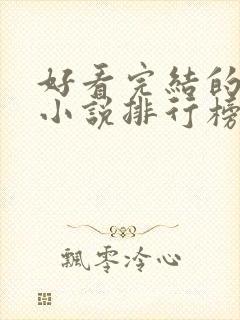 好看完結的
小說排行榜
飄零冷心